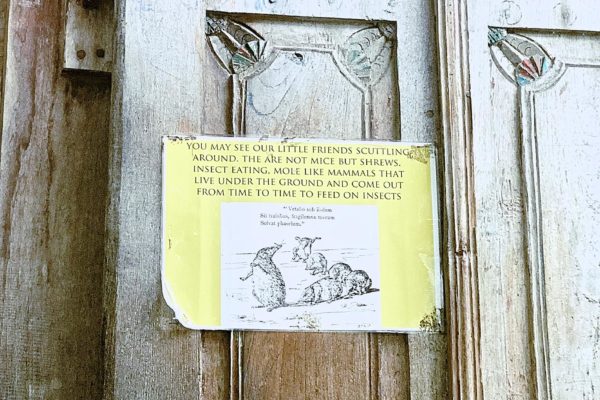 YOU MAY SEE OUR LITTLE FRIENDS SCUTTLING
AROUND. THE ARE NOT MICE BUT SHREWS.
INSECT EATING, MOLE LIKE MAMMALS THAT
LIVE UNDER THE GROUND AND COME OUT
FROM TIME TO TIME TO FEED ON INSECTS
"Vetabo sub iisdem
Sit trabibus, fragilemve mecum
Solvat phaselum."